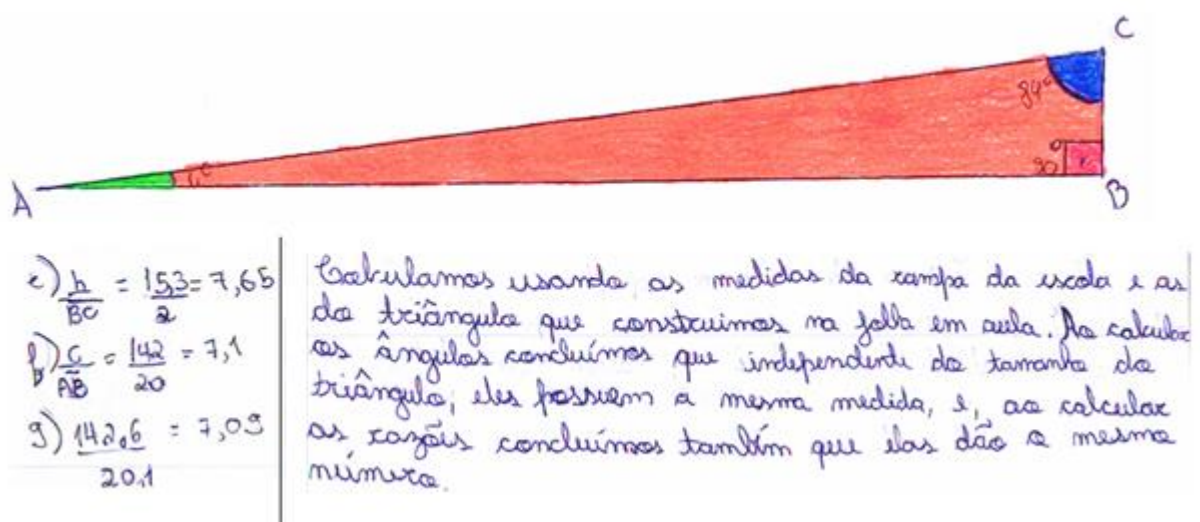 C
84°
6°
90°
A
B
e) h/BC = 15,3/2 = 7,65
f) c/AB = 142/20 = 7,1
g) 142,6/20,1 = 7,09
Calculamos usando as medidas da rampa da escola e as
do triângulo que construimos na folha em aula. Ao calcular
os ângulos concluímos que independente do tamanho do
triângulo, eles possuem a mesma medida, e, ao calcular
as razões concluímos também que elas dão o mesmo
número.